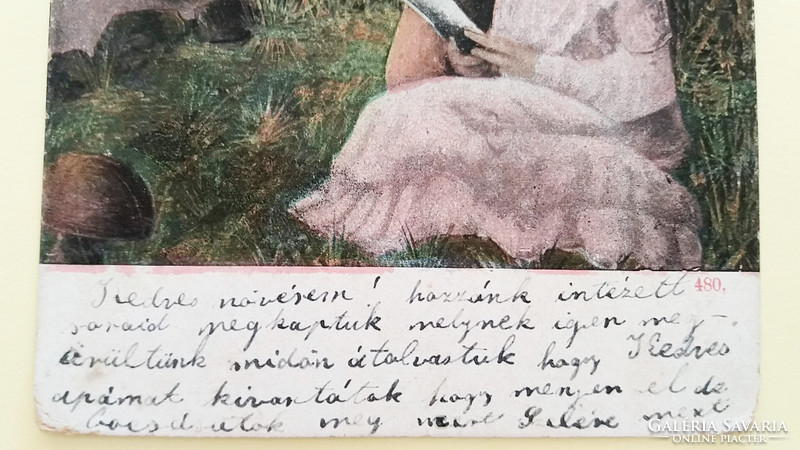 Kedves növérem! hozzánk intézett
soraid megkaptuk melynek igen meg-
örültünk midön átolvastuk hogy Kedves
apámat kivantátok hogy menjen el de
bocsásatok meg mert mert
480.
GALERIA SAVARIA
ONLINE PIACTER